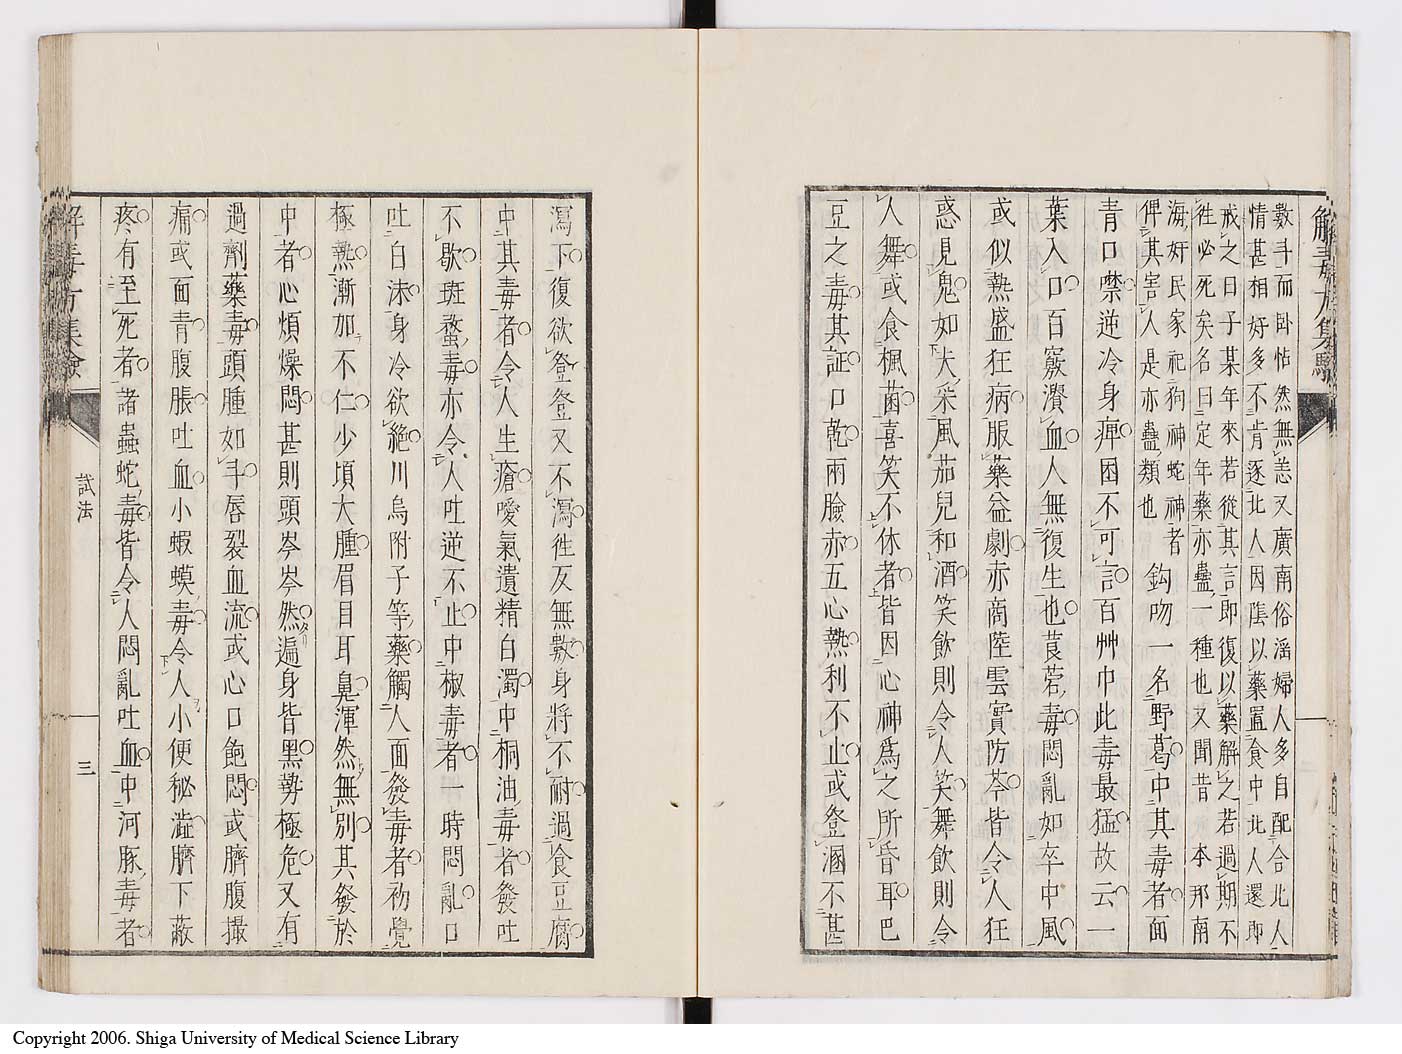 解毒方集驗
數斗而卧怙然無恙又廣南俗滛婦人多自配合北人
情甚相好多不肯逐北人因陰以藥置食中北人還即
戒之曰子某年來若從其言即復以藥解之若過期不
徃必死矣名曰定年藥亦蠱一種也又聞昔本那南
海奸民家祀狗神蛇神者
俾其害人是亦蠱類也 鈎吻一名野葛中其毒者面
青口噤逆冷身痺困不可言百艸中此毒最猛故云一
葉入口百竅潰血人無復生也莨菪毒悶亂如卒中風
或似熱盛狂病服藥益劇赤商陸雲實防苓皆令人狂
惑見鬼如犬采風茄兒和酒笑飲則令人笑舞飲則令
人舞或食楓菌喜笑不休者皆因心神為之所昏耳巴
豆之毒其証口乾兩臉赤五心熱利不止或登溷不甚
瀉下復欲登登又不瀉徃反無數身將不耐過食豆腐
中其毒者令人生瘡噯氣遺精白濁中桐油毒者發吐
不歇斑蝥毒亦令人吐逆不止中椒毒者一時悶亂口
吐白沫身冷欲絶川烏附子等藥觸人面發毒者初覺
極熱漸加不仁少頃大腫眉目耳鼻渾然無別其發於
中者心煩燥悶甚則頭岑岑然遍身皆黑勢極危又有
過劑藥毒頭腫如斗唇裂血流或心口飽悶或臍腹撮
痛或面青腹脹吐血小蝦蟆毒令人小便秘澁臍下蔽
疼有至死者諸蟲蛇毒皆令人悶亂吐血中河豚毒者
解毒方集驗
試法
三
Copyright 2006. Shiga University of Medical Science Library